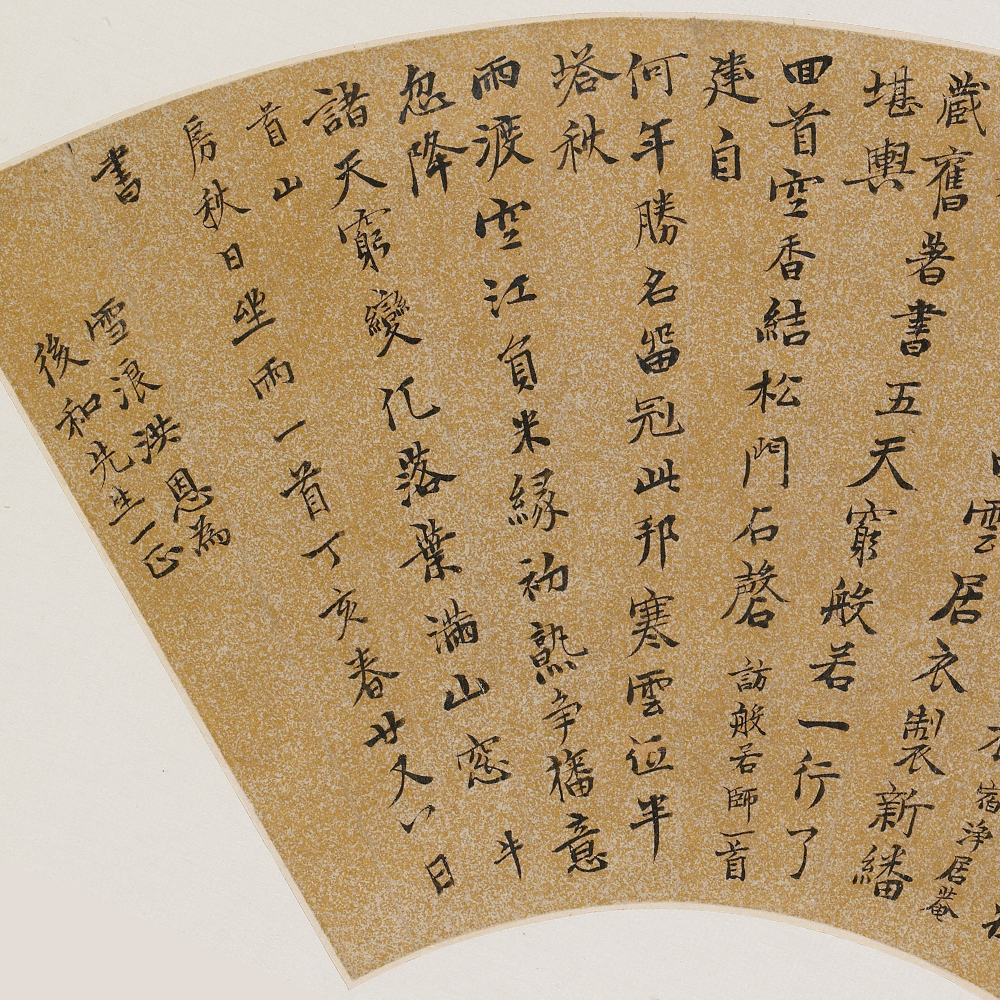 宿淨居菴
雲居衣製新繙
藏舊著書五天窮般若一行了
堪輿
回首空香結松門石磬 訪般若師一首
建自
何年勝名留冠此邦寒雲低半
塔秋
雨渡空江負米緣初熟爭幡意
忽降
諸天窮變化落葉滿山窓 牛
首山
房秋日坐雨一首丁亥春廿又八日
書
雪浪洪恩為
後和先生一正